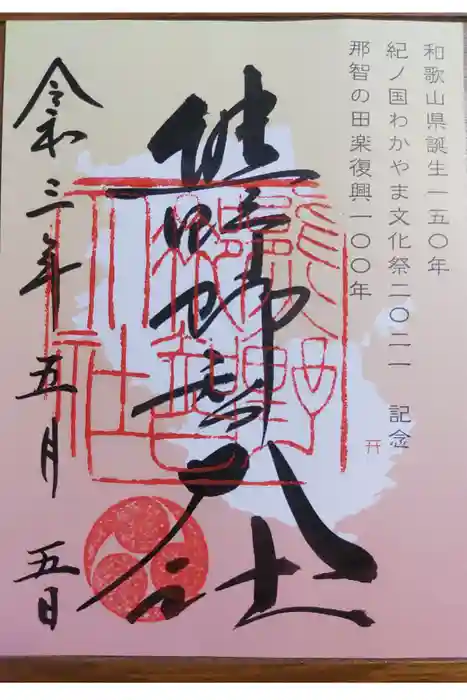 和歌山県誕生一五〇年
紀ノ国わかやま文化祭二〇二一　記念
那智の田楽復興一〇〇年
熊野那智大社
熊野那智大社
令和三年五月五日